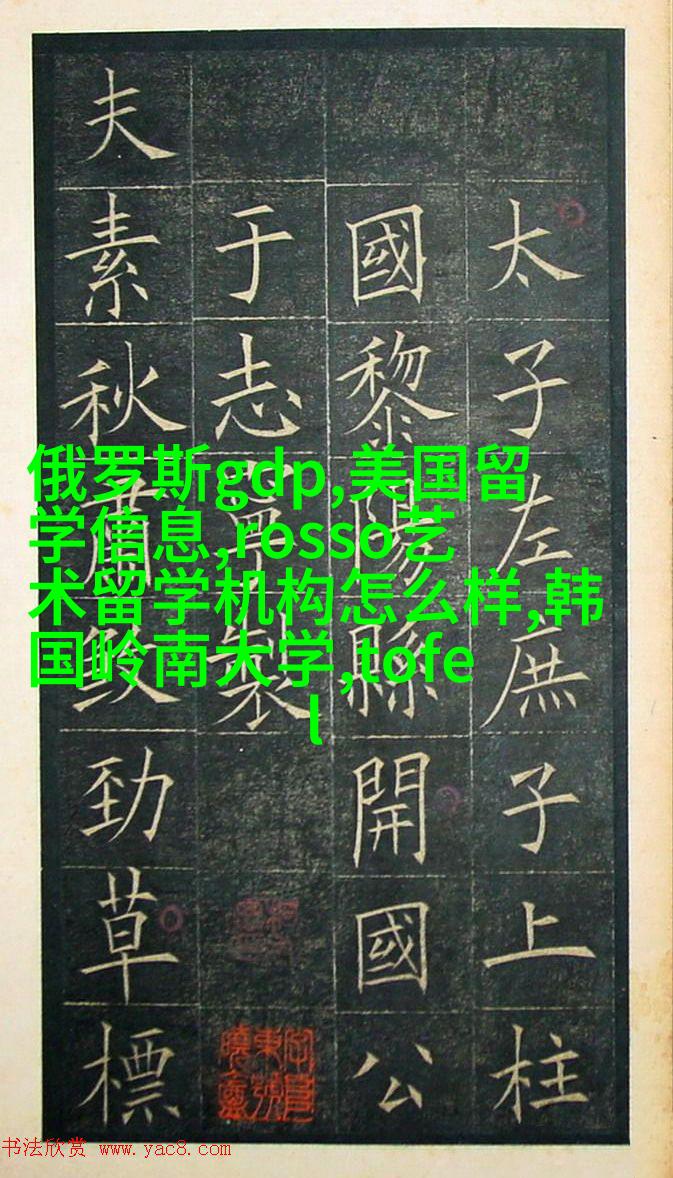 太子左庶子上柱
國黎陽縣開國公
于志寧製
夫素秋肅煞勁草標
俄罗斯gdp,美国留
学信息,rosso艺
术留学机构怎么样,韩
国岭南大学,tofe
l
书法欣赏 www.yac8.com